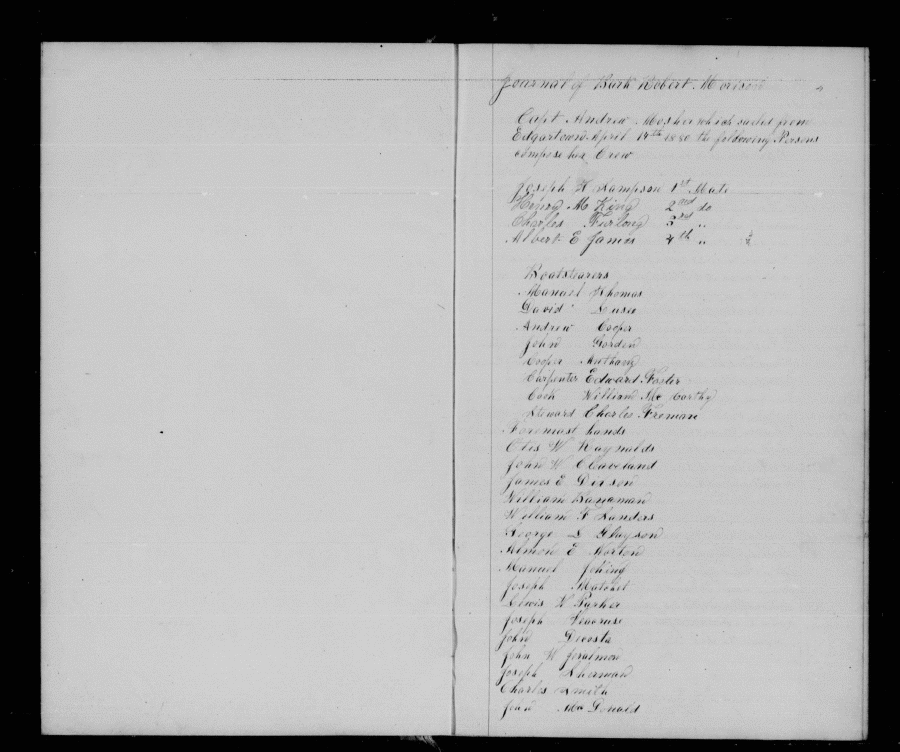 Journal of Bark Robert Morison
Capt Andrew Mosher which sailed from
Edgartown April 14th 1880 the following Persons
compose her Crew
Joseph H Sampson 1st Mate
Henry M King 2nd do
Charles Furlong 3rd "
Albert E James 4th "
Boatstearers
Manuel Thomas
David
Andrew Cooper
John Gorden
Cooper
Carpenter Edward Foster
Cook William Mc Carthy
Steward Charles Freman
Foremast hands
Otis W Raynalds
John W Cleaveland
James E
William
William F Sanders
George L
Almon E Norton
Manuel
Joseph
Lewis W Parker
Joseph
John Decosta
John W
Joseph Sherman
Charles Smith
John Mc Donald